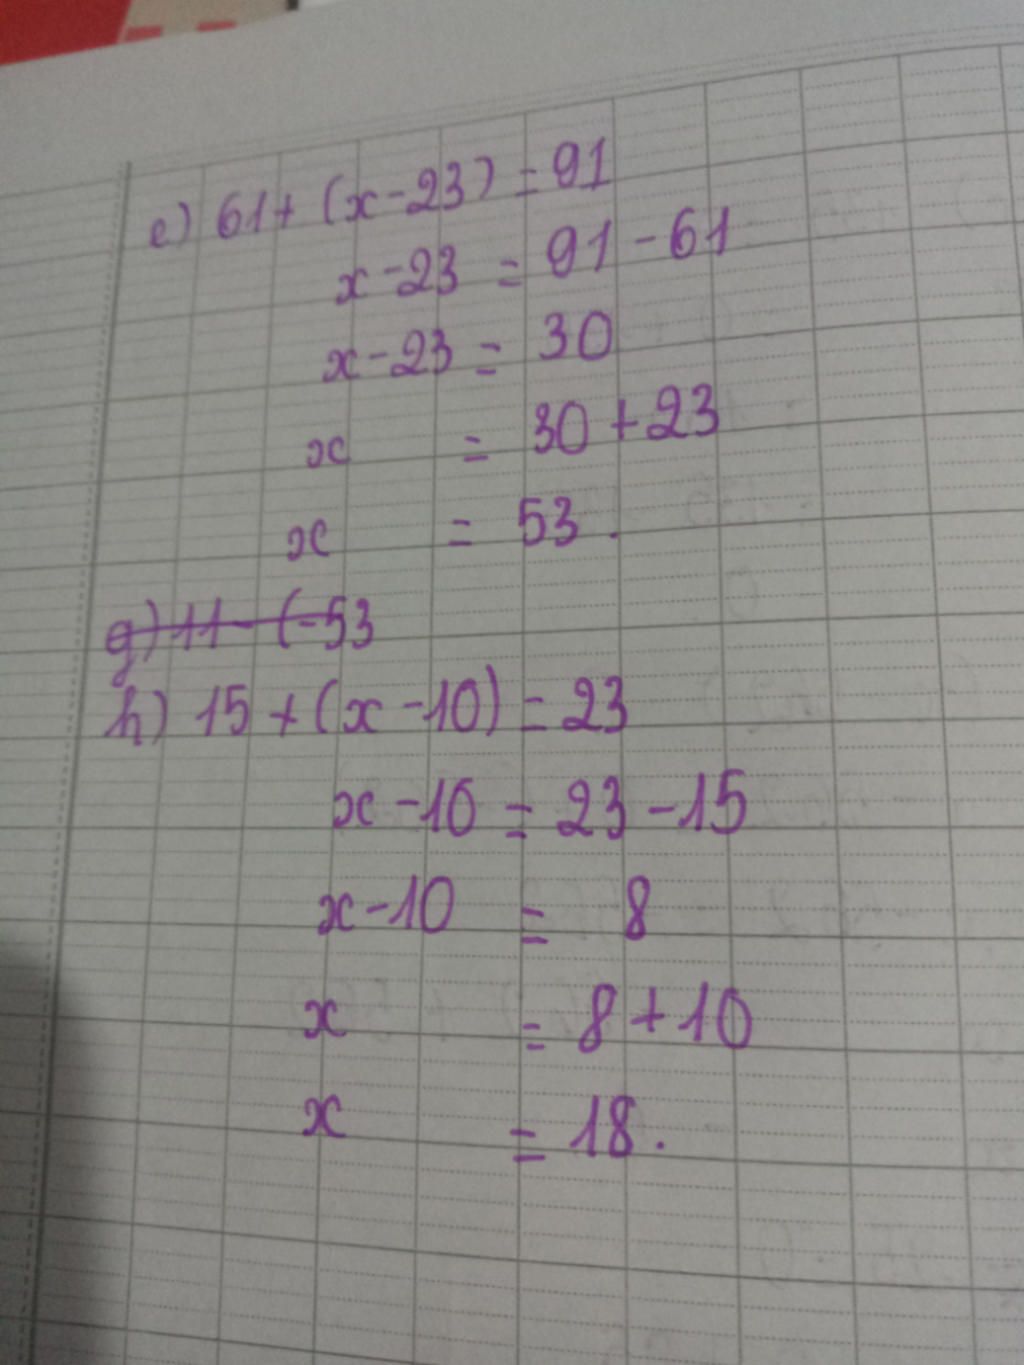 e) 61 + (x - 23) = 91
x - 23 = 91 - 61
x - 23 = 30
x = 30 + 23
x = 53.
g) 11 - (-53
h) 15 + (x - 10) = 23
x - 10 = 23 - 15
x - 10 = 8
x = 8 + 10
x = 18.